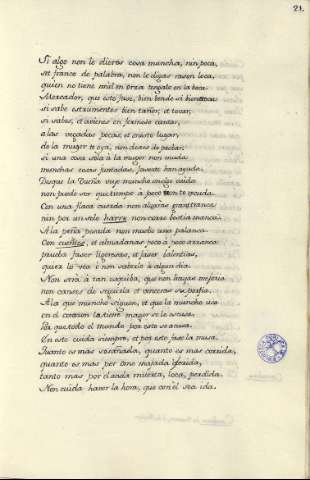 21.
Si algo non le dieras cosa muncha, nin poca,
sei franco de palabra, non le digas rason loca,
quien no tiene miel en orza tengala en la boca.
Mercador, que esto fase, bien vende et bien troca
si sabe estrumentes bien tañer, et tocar,
si sabes, et avienes en fermoso cantar,
a las vegadas pocas, et onesto lugar,
de la muger te oya, non dexes de probar.
si una cosa sola a la muger non muda
munchas cosas juntadas, facerte han ayuda.
Desque lo oye muncho en ello cuida
non puede ser que tiempo a peco non te acuda.
Con una flaca cuerda non alzarás gran tranca
nin por un solo harre non corre bestia manca
A la peña pesada non mueve una palanca
Con cuños, et almadanas poco a poco arranca
prueba facer ligeresas, et faser valentias,
quiera lo vea o non sabralo algun dia.
Non será tan esquiva, que non hayas mejoria
non canses de seguilla et vences su porfia.
A la que muncho siguen, et que la muncho usa
en el corazon la tiene maguer se le escusa.
Pero que todo el mundo por esto se acusa.
En este cuida siempre, et por este fase la musa.
Quanto es mas sosañada, quanto es mas corrida,
quanto es mas por ome majada, ferida,
tanto mas por el anda muerta, loca, perdida.
Non cuida haver la hora, que con él sea ida.